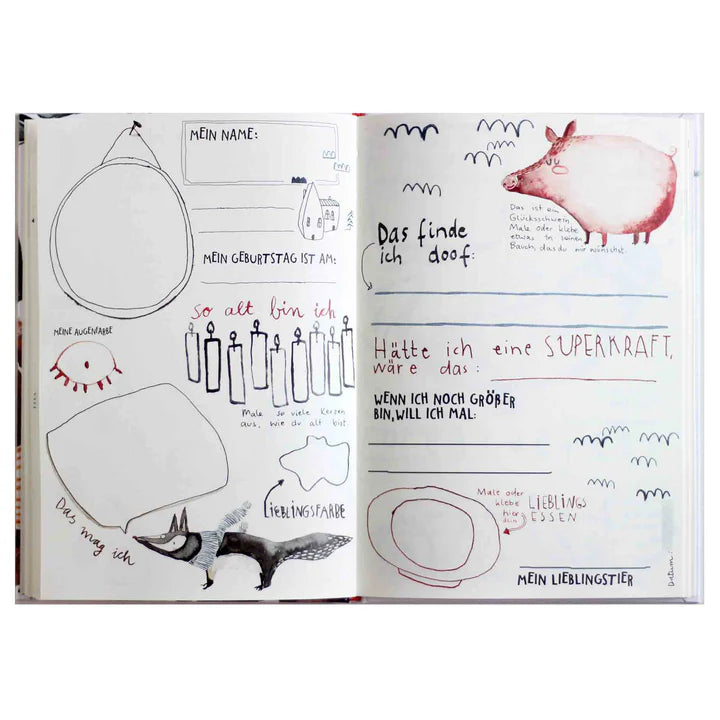 MEIN NAME:
MEIN GEBURTSTAG IST AM:
So alt bin ich
MEINE AUGENFARBE
Male so viele Kerzen
aus, wie du alt bist.
LIEBLINGSFARBE
Das mag ich
Das ist ein
Glücksschwein.
Male oder klebe
etwas in seinen
Bauch, das du mir wünschst.
Das finde
ich doof:
Hätte ich eine SUPERKRAFT,
wäre das:
WENN ICH NOCH GRÖßER
BIN, WILL ICH MAL:
Male oder
klebe
hier
dein
LIEBLINGS
ESSEN
MEIN LIEBLINGSTIER
Datum: